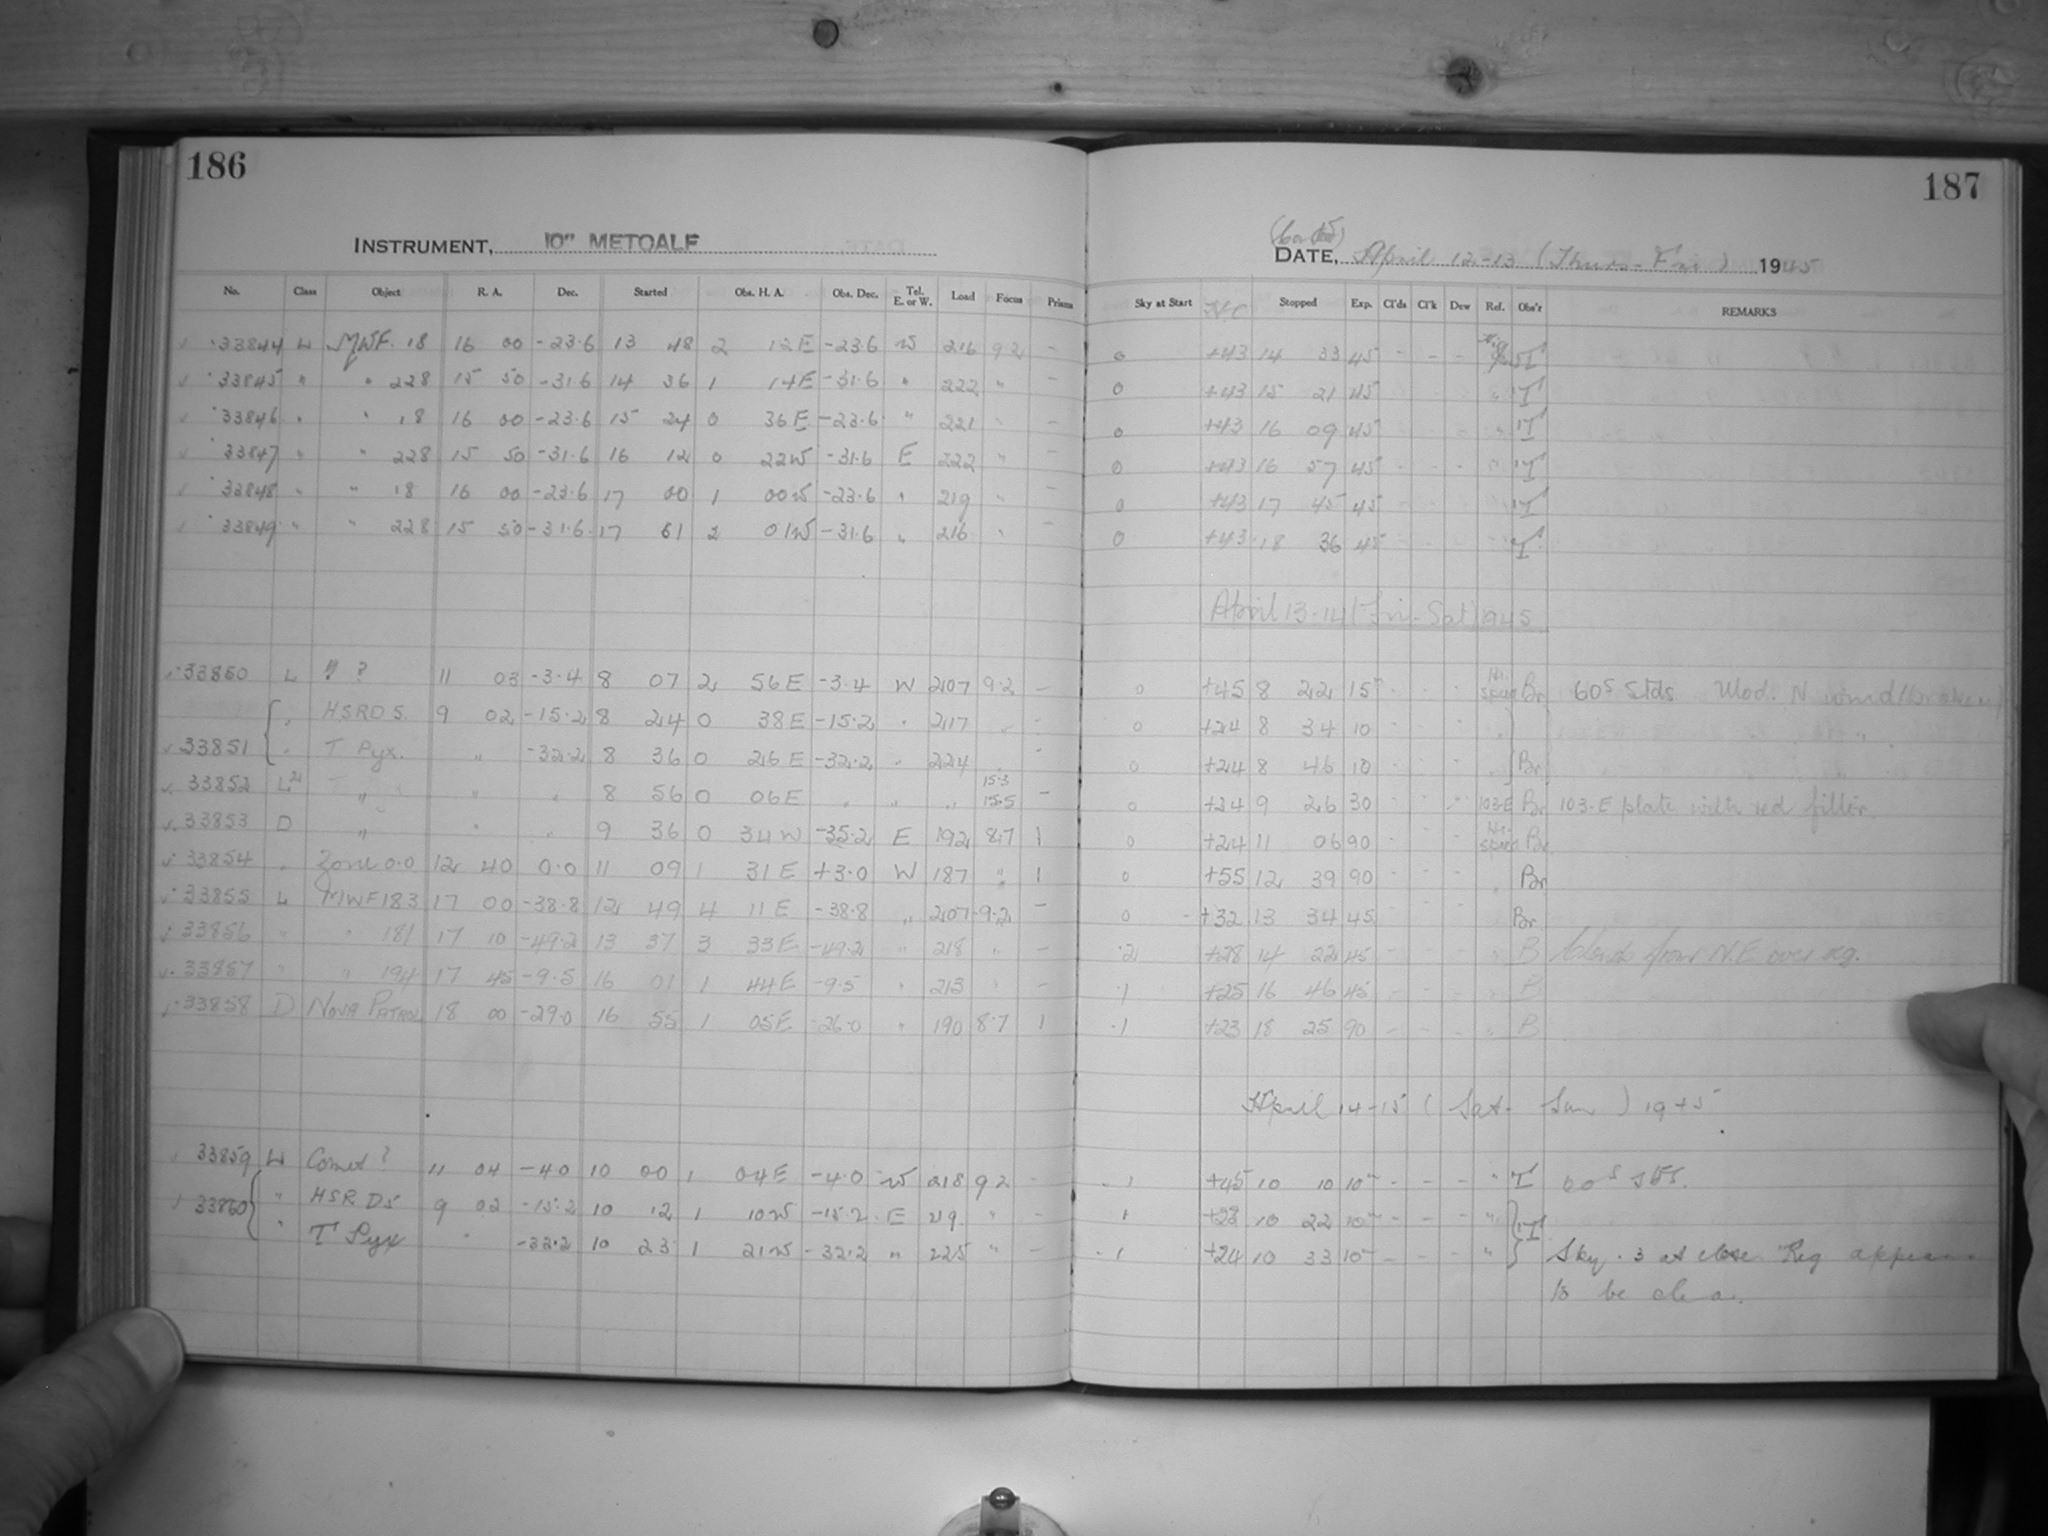 186
187
INSTRUMENT, 10" METCALF
DATE, April 12-13 (Thurs-Fri) 1945
No. Class Object R. A. Dec. Started Obs. H. A. Obs. Dec. Tel. E. or W. Load Focus Prisms Sky at Start Stopped Exp. Cl'ds Cl'k Dew Ref. Obs'r REMARKS
33844 L MWF. 18 16 00 -23.6 13 48 2 12E -23.6 W 216 9.2 - 0 +43 14 33 45 - - - T
33845 " " 228 15 50 -31.6 14 36 1 14E -31.6 " 222 " - 0 +43 15 21 45 T
33846 " " 18 16 00 -23.6 15 24 0 36E -23.6 " 221 " - 0 +43 16 09 45 T
33847 " " 228 15 50 -31.6 16 12 0 22W -31.6 E 222 " - 0 +43 16 57 45 T
33848 " " 18 16 00 -23.6 17 00 1 00W -23.6 " 219 " - 0 +43 17 45 45 T
33849 " " 228 15 50 -31.6 17 51 2 01W -31.6 " 216 " - 0 +43 18 36 45 T
April 13-14 (Fri-Sat) 1945
33850 L " ? 11 03 -3.4 8 07 2 56E -3.4 W 207 9.2 - 0 +45 8 22 15m Br 60s Stds. Mod. N wind
" HSRDS. 9 02 -15.2 8 24 0 38E -15.2 " 217 - 0 +24 8 34 10
33851 " T Pyx. " -32.2 8 36 0 26E -32.2 " 224 - 0 +24 8 46 10 Br
33852 " " " 8 56 0 06E " " " 15.3 15.5 - 0 +24 9 26 30 103-E Br 103-E plate with red filter.
33853 D " " " 9 36 0 34W -35.2 E 192 8.7 1 0 +24 11 06 90 Br
33854 " Zone 0.0 12 40 0.0 11 09 1 31E +3.0 W 187 " 1 0 +55 12 39 90 Br
33855 L MWF183 17 00 -38.8 12 49 4 11E -38.8 " 207 9.2 - 0 +32 13 34 45 Br
33856 " " 181 17 10 -49.2 13 37 3 33E -49.2 " 218 " - .2 +28 14 22 45 B Clouds from N.E over rg.
33857 " " 194 17 45 -9.5 16 01 1 44E -9.5 " 213 " - .1 +25 16 46 45 B
33858 D NOVA PATROL 18 00 -29.0 16 55 1 05E -26.0 " 190 8.7 1 .1 +23 18 25 90 B
April 14-15 (Sat- Sun) 1945
33859 L Comet? 11 04 -4.0 10 00 1 04E -4.0 W 218 9.2 - .1 +45 10 10 10m - - - " T
33860 " HSRDS 9 02 -15.2 10 12 1 10W -15.2 E 219 " - .1 10 22 10m - - - " T
" T Pyx " -32.2 10 23 1 21W -32.2 " 225 " - .1 +24 10 33 10m - - - " Sky .3 at close. Reg appears
to be clear.